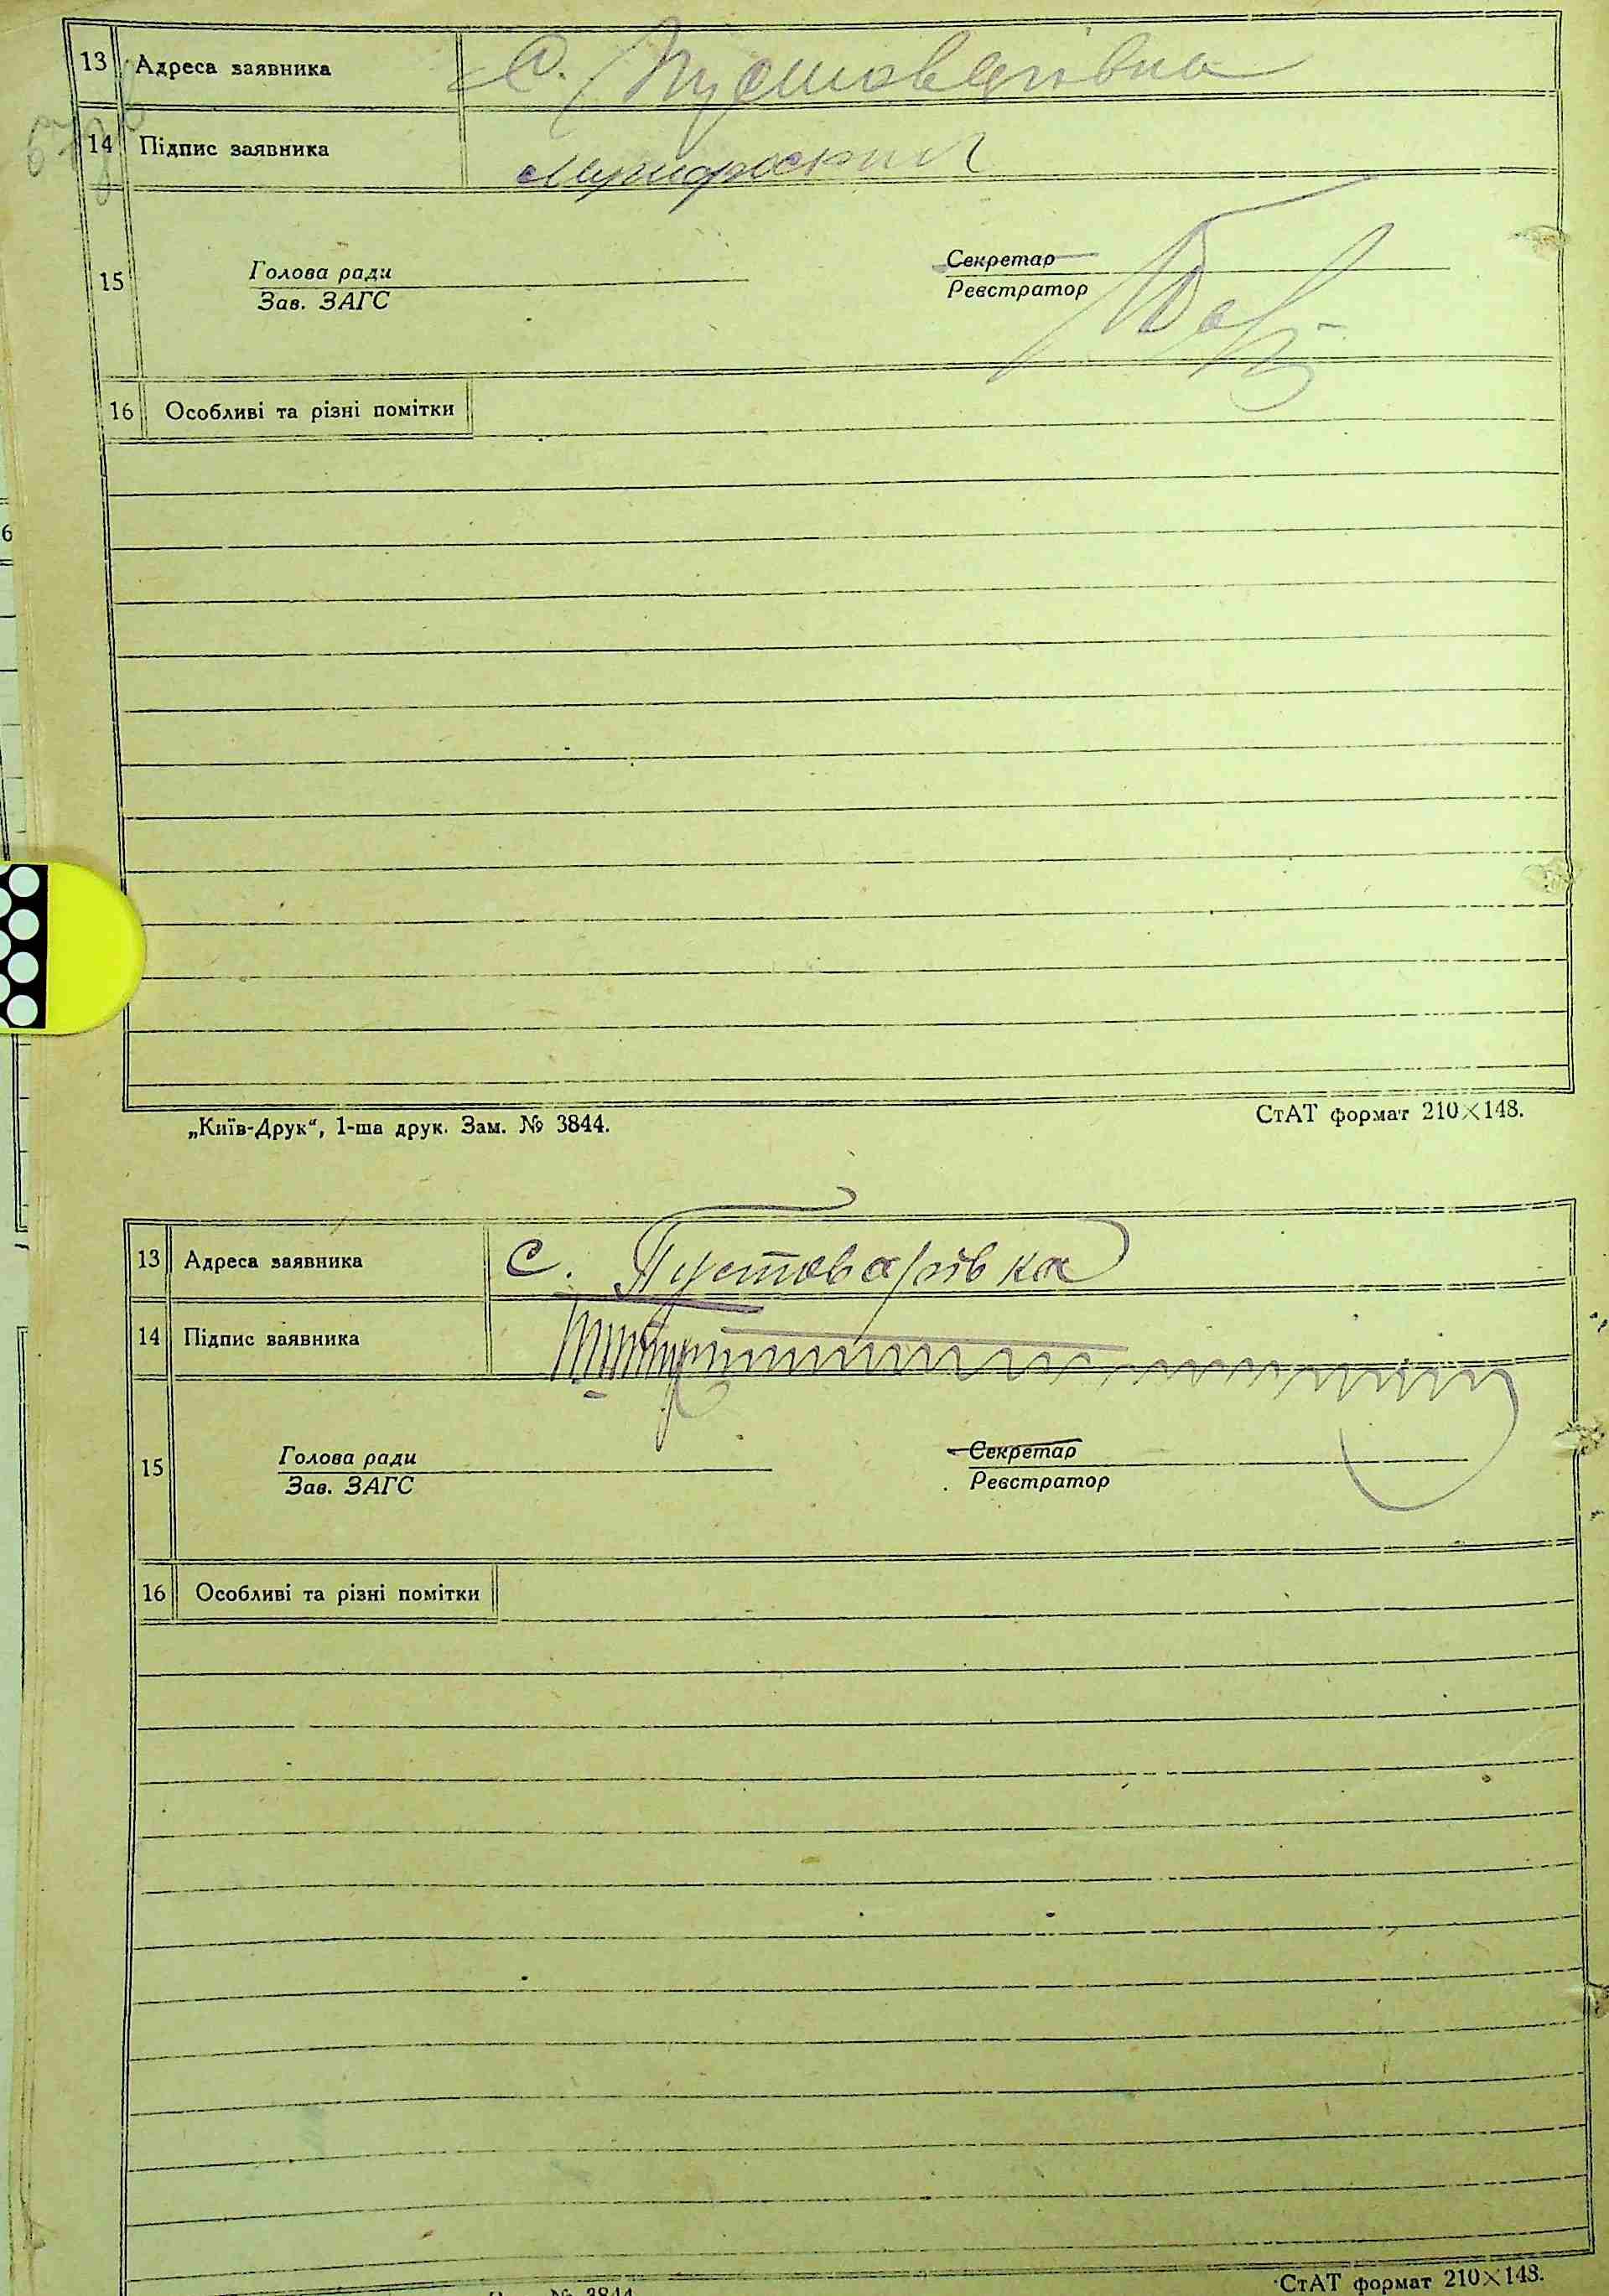 13 Адреса заявника с. Пустоварівка
14 Підпис заявника
15 Голова ради Секретар
Зав. ЗАГС Реєстратор
16 Особливі та різні помітки
„Київ-Друк“, 1-ша друк. Зам. № 3844. СтАТ формат 210×148.
13 Адреса заявника с. Пустоварівка
14 Підпис заявника
15 Голова ради Секретар
Зав. ЗАГС Реєстратор
16 Особливі та різні помітки
№ 3844 СтАТ формат 210×148.